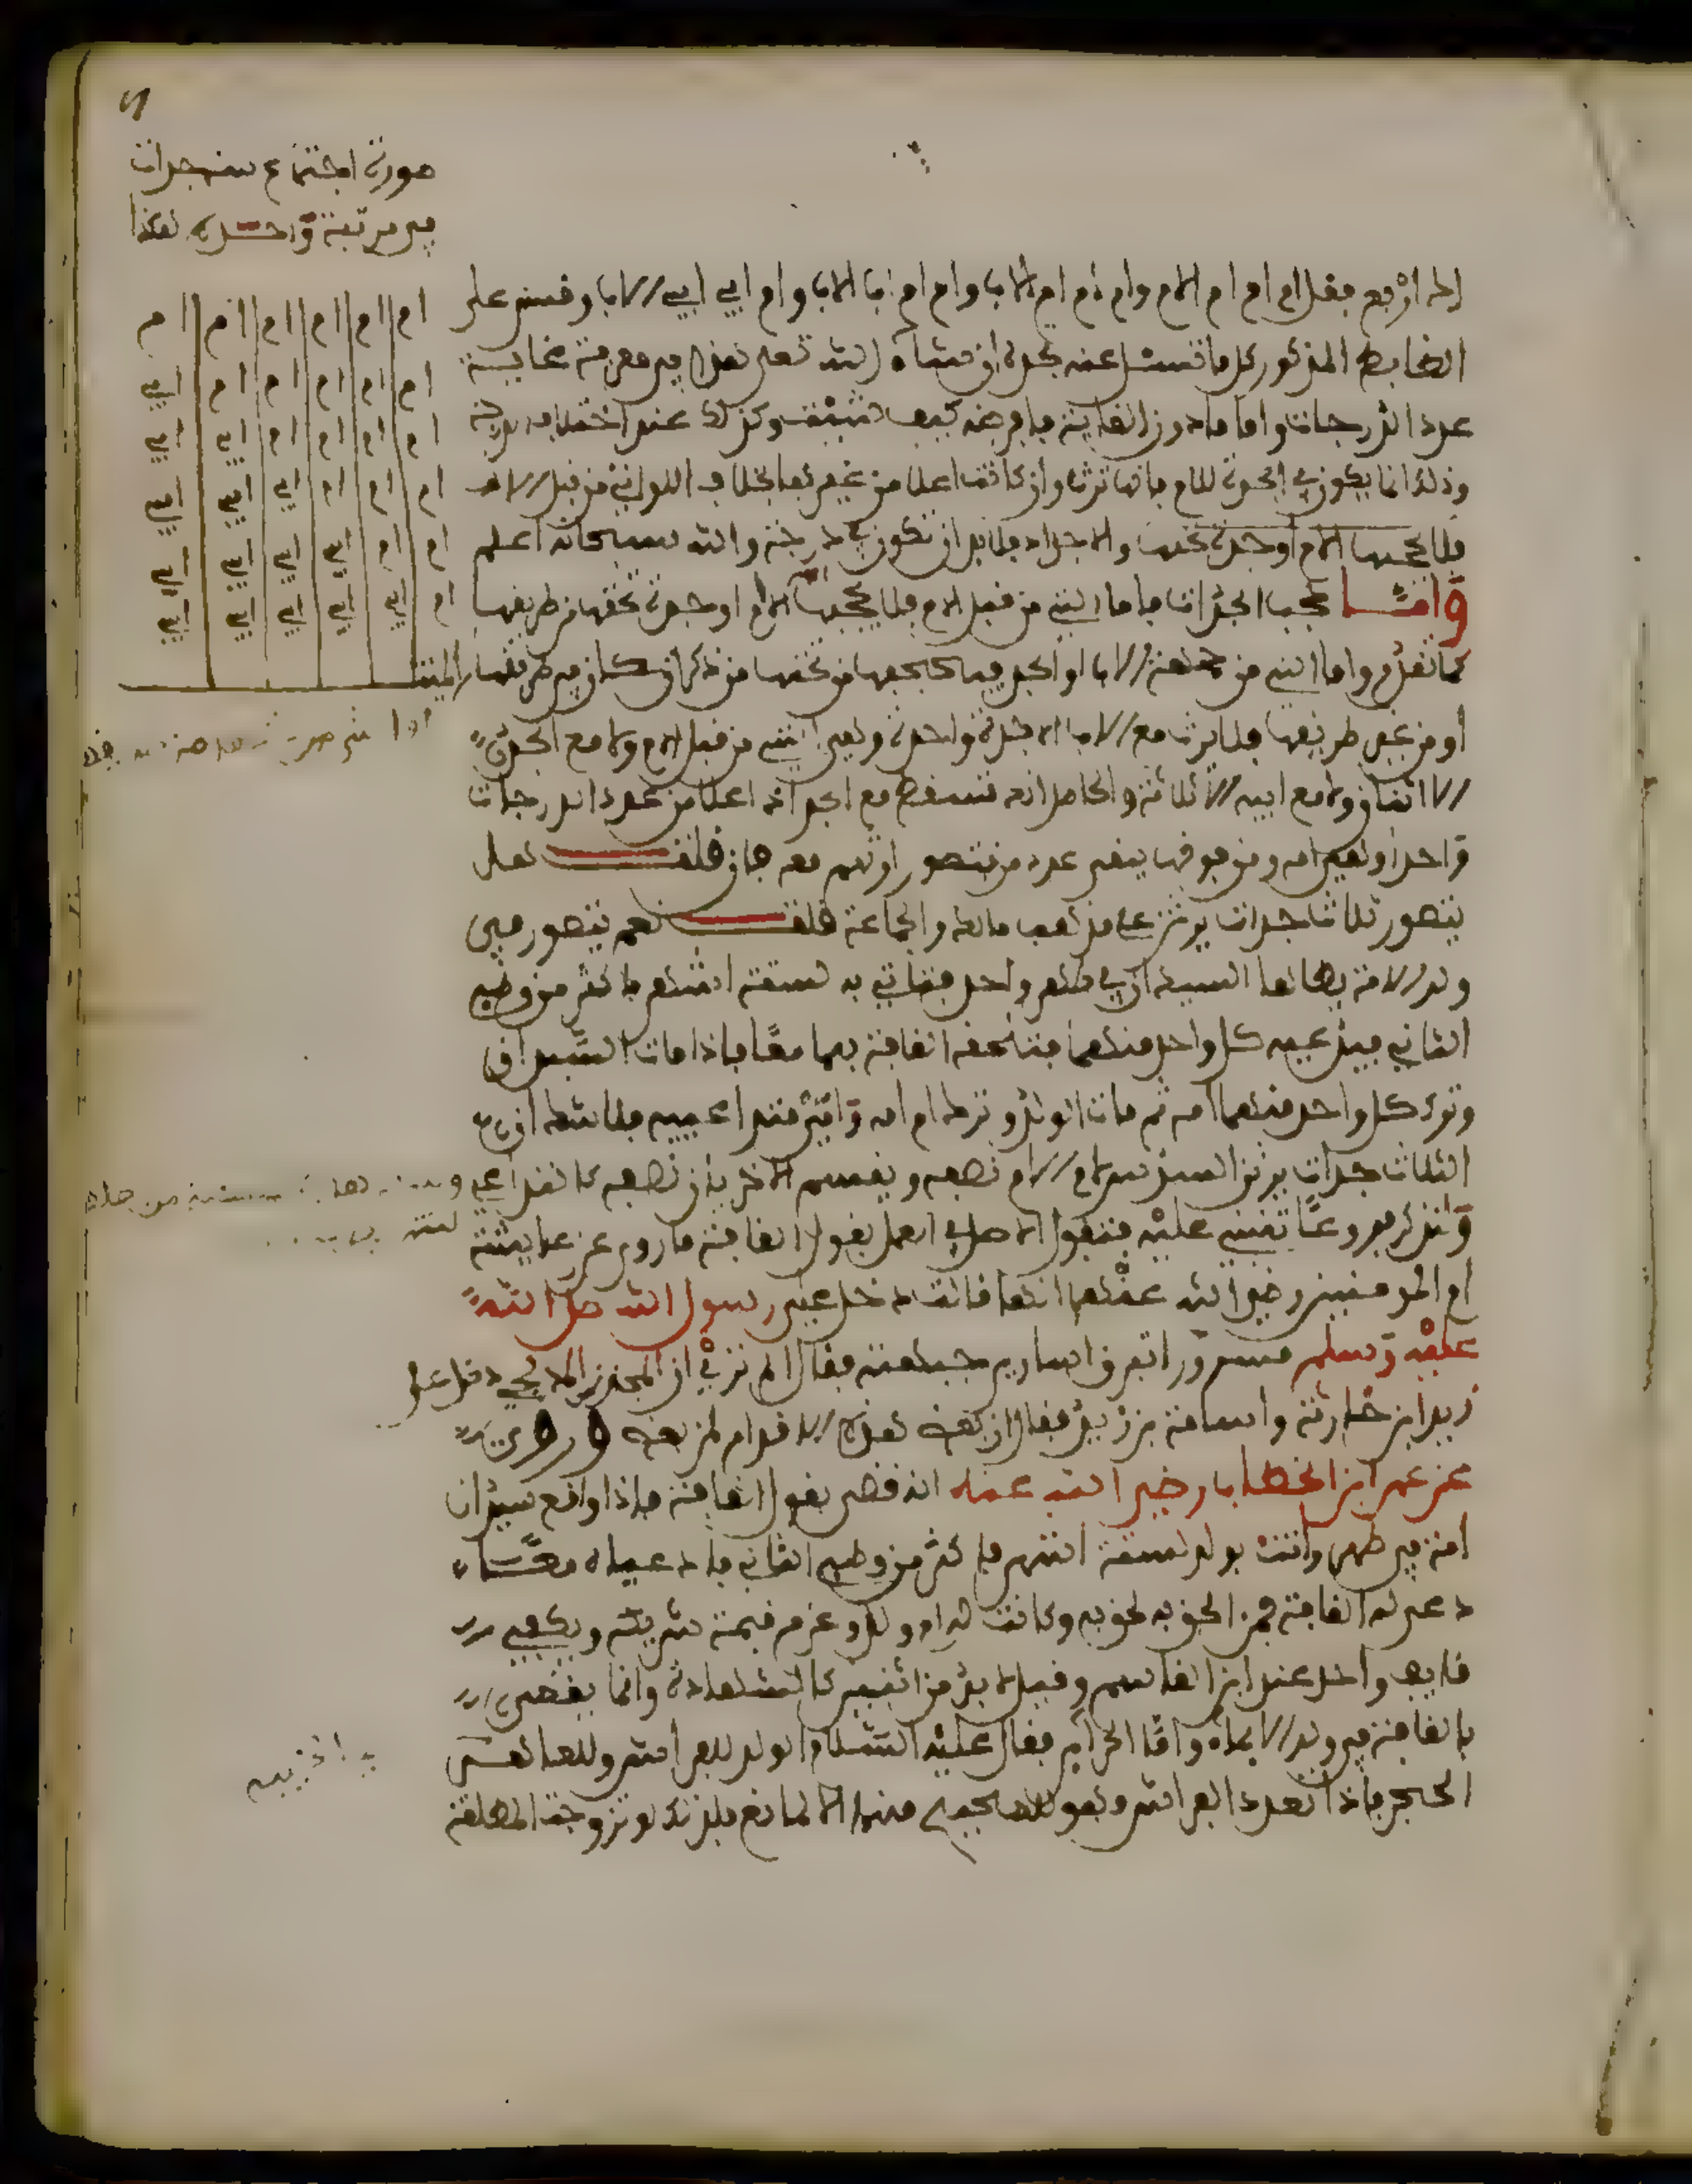 صورة اجتماع ست جدات
في مرتبة واحدة هكذا
ام ام ام ام ام ام
ام ام ام ام ام ابي
ام ام ام ام ابي ابي
ام ام ام ابي ابي ابي
ام ام ابي ابي ابي ابي
ام ابي ابي ابي ابي ابي
اربع فقل ام ام ام ام الام وام ام ام ام الاب وام ام ام ابا الاب وام ابي ابي الاب وقس على
الضابط المذكور كل ما تسئل عنه تجده ان شاء الله تعلى هذا في معرفة غاية
عدد الدرجات واما ما دون الغاية فافرضه كيف شئت وكذلك عند اختلاف درجة
وذلك انما يكون في الجدة للام فانها ترث وان كانت اعلا من غيرها بخلاف اللواتي من قبل الاب
فلا يحجبها الام او جدة تحتها والاجداد فلا بد ان تكون في درجة والله سبحانه اعلم
وامــا حجب الجدات فاما التي من قبل الام فلا يحجبها الا الام او جدة تحتها من طريقها
كما تقدم واما التي من جهة الاب او الجد فيحجبها من تحتها من ذكر ان كان في طريقها
او من غير طريقها فلا يرث مع الاب الا جدة واحدة وهي التي من قبل الام ولا مع الجد
الا اثنان ولا مع ابيه الا ثلاثة والحاصل انه تسقط مع الجد اعلا من عدد الدرجات
واحدا وهي امه ومن فوقها يبقى عدد من يتصور ارثهم معه فان قلت هل
يتصور ثلاث جدات يرثن على مذهب مالك والجماعة قلت نعم يتصور في
ولد الامة يطاها السيدان في طهر واحد فتاتي به لستة اشهر فاكثر من وطء
الثاني فيدعيه كل واحد منهما فتلحقه القافة بهما معا فاذا مات السيدان
وترك كل واحد منهما امه ثم مات الولد وترك ام امه واميْ سيدا ابيه فلا شك ان
الثلاث جدات يرثن السدس لام الام نصفه ويقسم الاخر بان نصفه كما
ولنذكر فروعا تنبني عليه فنقول الاصل في العمل بقول القافة ما روي عن عايشة
ام المومنين رضي الله عنهما انها قالت دخل علي رسول الله صلى الله
عليه وسلم مسرورا تبرق اسارير جبهته فقال الم تري ان المجزز المدلجي دخل على
زيد ابن حارثة واسامة بن زيد فقال ان بعض هذه الاقدام لمن بعض وروي
عن عمر ابن الخطاب رضي الله عنه انه قضى بقول القافة فاذا واقع سيدان
امة في طهر واتت بولد لستة اشهر فاكثر من وطء الثاني فادعياه معا
دعي له القافة فمن الحق به لحق به وكانت له ام ولد وغرم قيمة شريكه ويكفي
قايف واحد عند ابن القاسم وقيل لا بد من اثنين كالشهادة وانما يقضى
بالقافة في ولد الاماء واما الحراير فقال عليه السلام الولد للفراش وللعاهر
الحجر فاذا تعدد الفراش وهو للصحيح منهما الا لمانع فلذلك لو تزوجت المطلقة